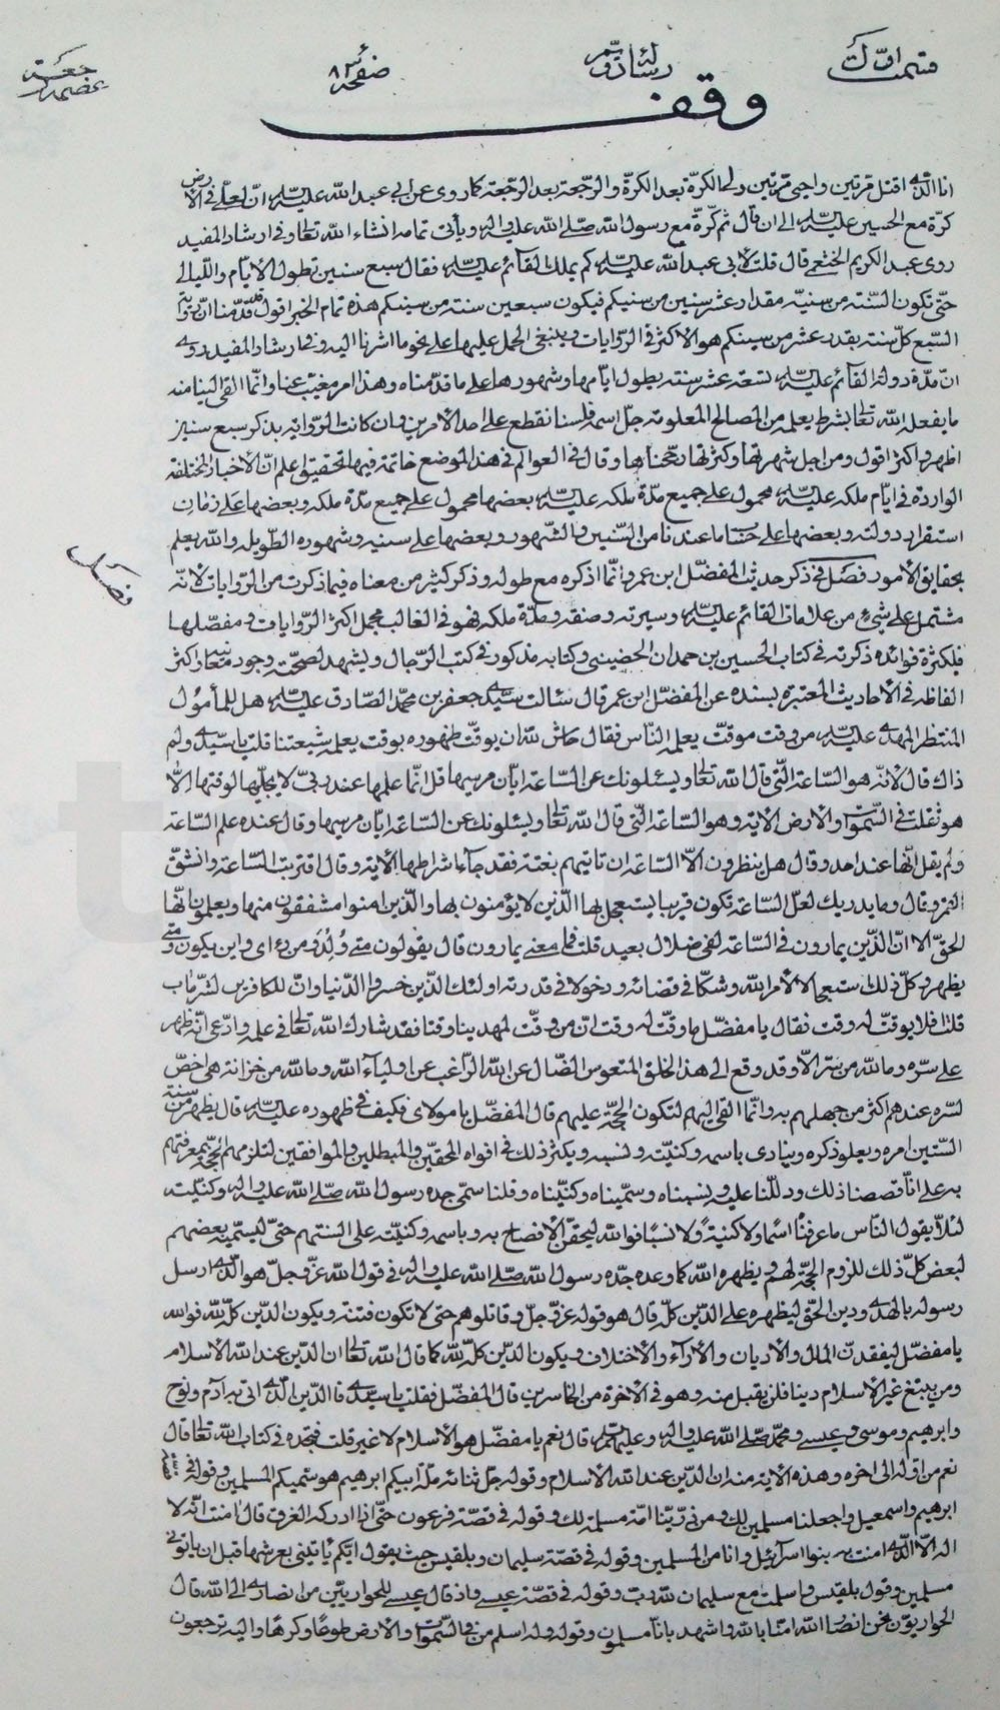 قسمت اول رسالة دويم صفحه ٨٣ عصمة رجعت
وقف
انا الذى اقتل مرتين واحيى مرتين ولى الكرة بعد الكرة والرجعة بعد الرجعة كما روى عن ابي عبد الله عليه السلام ان لعلى في الارض
كرة مع الحسين عليه السلام الى ان قال ثم كرة مع رسول الله صلى الله عليه واله وياتى تمامه انشاء الله تعالى وفى ارشاد المفيد
روى عبد الكريم الخثعمى قال قلت لابى عبد الله عليه السلام كم يملك القائم عليه السلام فقال سبع سنين تطول الايام والليالى
حتى تكون السنة من سنيه مقدار عشر سنين من سنيكم فيكون سبعين سنة من سنيكم هذه تمام الخبر اقول قد قدمنا ان رواية
السبع كل سنة بقدر عشر من سنينكم هو الاكثر فى الروايات وينبغى الحمل عليها على نحو ما اشرنا اليه وفى ارشاد المفيد روى
ان مدة دولة القائم عليه السلام تسعة عشر سنة يطول ايامها وشهورها على ما قدمناه وهذا امر مغيب عنا وانما القى الينا منه
ما يفعله الله تعالى بشرط يعلمه من المصالح المعلومة جل اسمه فلسنا نقطع على احد الامرين وان كانت الرواية بذكر سبع سنين
اظهر واكثر اقول ومن اجل شهرتها وكثرتها رجحناها وقال فى العوالم فى هذا الموضع خاتمة فيها تحقيق اعلم ان الاخبار المختلفة
الواردة فى ايام ملكه عليه السلام محمول على جميع مدة ملكه عليه السلام بعضها محمول على جميع مدة ملكه وبعضها على زمان
استقرار دولته وبعضها على حساب ما عندنا من السنين والشهور وبعضها على سنيه وشهوره الطويلة والله يعلم
بحقايق الامور فصل فى ذكر حديث المفضل ابن عمر وانما اذكره مع طوله وذكر كثير من معناه فيما ذكرت من الروايات لانه
فصل
مشتمل على شئ من علامات القائم عليه السلام وسيرته وصفته ومدة ملكه فهو فى الغالب مجمل اكثر الروايات ومفصلها
فلكثرة فوائده ذكرته فى كتاب الحسين بن حمدان الحضينى وكتابه مذكور فى كتب الرجال ويشهد لصحته وجود معانيه واكثر
الفاظه فى الاحاديث المعتبرة بسنده عن المفضل ابن عمر قال سالت سيدى جعفر بن محمد الصادق عليه السلام هل للمأمول
المنتظر المهدى عليه السلام من وقت موقت يعلمه الناس فقال حاش لله ان يوقت ظهوره بوقت يعلمه شيعتنا قلت يا سيدى ولم
ذاك قال لانه هو الساعة التى قال الله تعالى ويسئلونك عن الساعة ايان مرسيها قل انما علمها عند ربى لا يجليها لوقتها الا
هو ثقلت فى السموات والارض الاية وهو الساعة التى قال الله تعالى ويسئلونك عن الساعة ايان مرسيها وقال عنده علم الساعة
ولم يقل انها عند احد وقال هل ينظرون الا الساعة ان تاتيهم بغتة فقد جآء اشراطها الاية وقال اقتربت الساعة وانشق
القمر وقال وما يدريك لعل الساعة تكون قريبا يستعجل بها الذين لا يؤمنون بها والذين امنوا مشفقون منها ويعلمون انها
الحق الا ان الذين يمارون فى الساعة لفى ضلال بعيد قلت فما معنى يمارون قال يقولون متى ولد ومن رءاى واين يكون ومتى
يظهر وكل ذلك ستعجالا لامر الله وشكا فى قضائه ودخولا فى قدرته اولئك الذين خسروا الدنيا وان للكافرين لشر ماب
قلت افلا يوقت له وقت فقال يا مفضل ما وقت له وقت ان من وقت لمهدينا وقتا فقد شارك الله تعالى فى علمه وادعى انه ظهر
على سره وما لله من سر الا وقد وقع الى هذا الخلق المتعوس الضال عن الله الراغب عن اولياء الله وما لله من خزانة هى اخص
لسره عندهم اكثر من جهلهم به وانما القى اليهم لتكون الحجة عليهم قال المفضل يا مولاى فكيف فى ظهوره عليه السلام قال يظهر من سنة
الستين امره ويعلو ذكره وينادى باسمه وكنيته ونسبه ويكثر ذلك فى افواه المحقين والمبطلين والموافقين لتلزمهم الحجة بمعرفتهم
به على انا قصصنا ذلك ودللنا عليه ونسبناه وسميناه وكنيناه وقلنا سمى جده رسول الله صلى الله عليه واله وكنيته
لئلا يقول الناس ما عرفنا اسما ولا كنية ولا نسبا فوالله ليحقن الافصاح به وباسمه وكنيته على السنتهم حتى ليسميه بعضهم
لبعض كل ذلك للزوم الحجة لهم ويظهره الله كما وعده جده رسول الله صلى الله عليه واله فى قول الله عز وجل هو الذى ارسل
رسوله بالهدى ودين الحق ليظهره على الدين كله قال هو قوله عز وجل وقاتلوهم حتى لا تكون فتنة ويكون الدين كله لله فوالله
يا مفضل ليفقدن المال والاديان والاراء والاختلاف ويكون الدين كله لله كما قال الله تعالى ان الدين عند الله الاسلام
ومن يبتغ غير الاسلام دينا فلن يقبل منه وهو فى الاخرة من الخاسرين قال المفضل فقلت يا سيدى فالدين الذى اتى به آدم ونوح
وابرهيم وموسى وعيسى ومحمد صلى الله عليه واله وعليهم قال نعم يا مفضل هو الاسلام لا غير قلت فتجده فى كتاب الله تعالى قال
نعم من اوله الى اخره وهذه الاية منه ان الدين عند الله الاسلام وقوله جل ثنائه ملة ابيكم ابرهيم هو سميكم المسلمين وقوله فى
ابرهيم واسمعيل واجعلنا مسلمين لك ومن ذريتنا امة مسلمة لك وقوله فى قصة فرعون حتى اذا ادركه الغرق قال امنت انه لا
اله الا الذى امنت به بنوا اسرآئيل وانا من المسلمين وقوله فى قصة سليمان وبلقيس حيث يقول ايكم ياتينى بعرشها قبل ان ياتونى
مسلمين وقول بلقيس واسلمت مع سليمان لله رب وقوله فى قصة عيسى واذ قال عيسى للحواريين من انصارى الى الله قال
الحواريون نحن انصار الله امنا بالله واشهد بانا مسلمون وقوله وله اسلم من فى السموات والارض طوعا وكرها واليه ترجعون